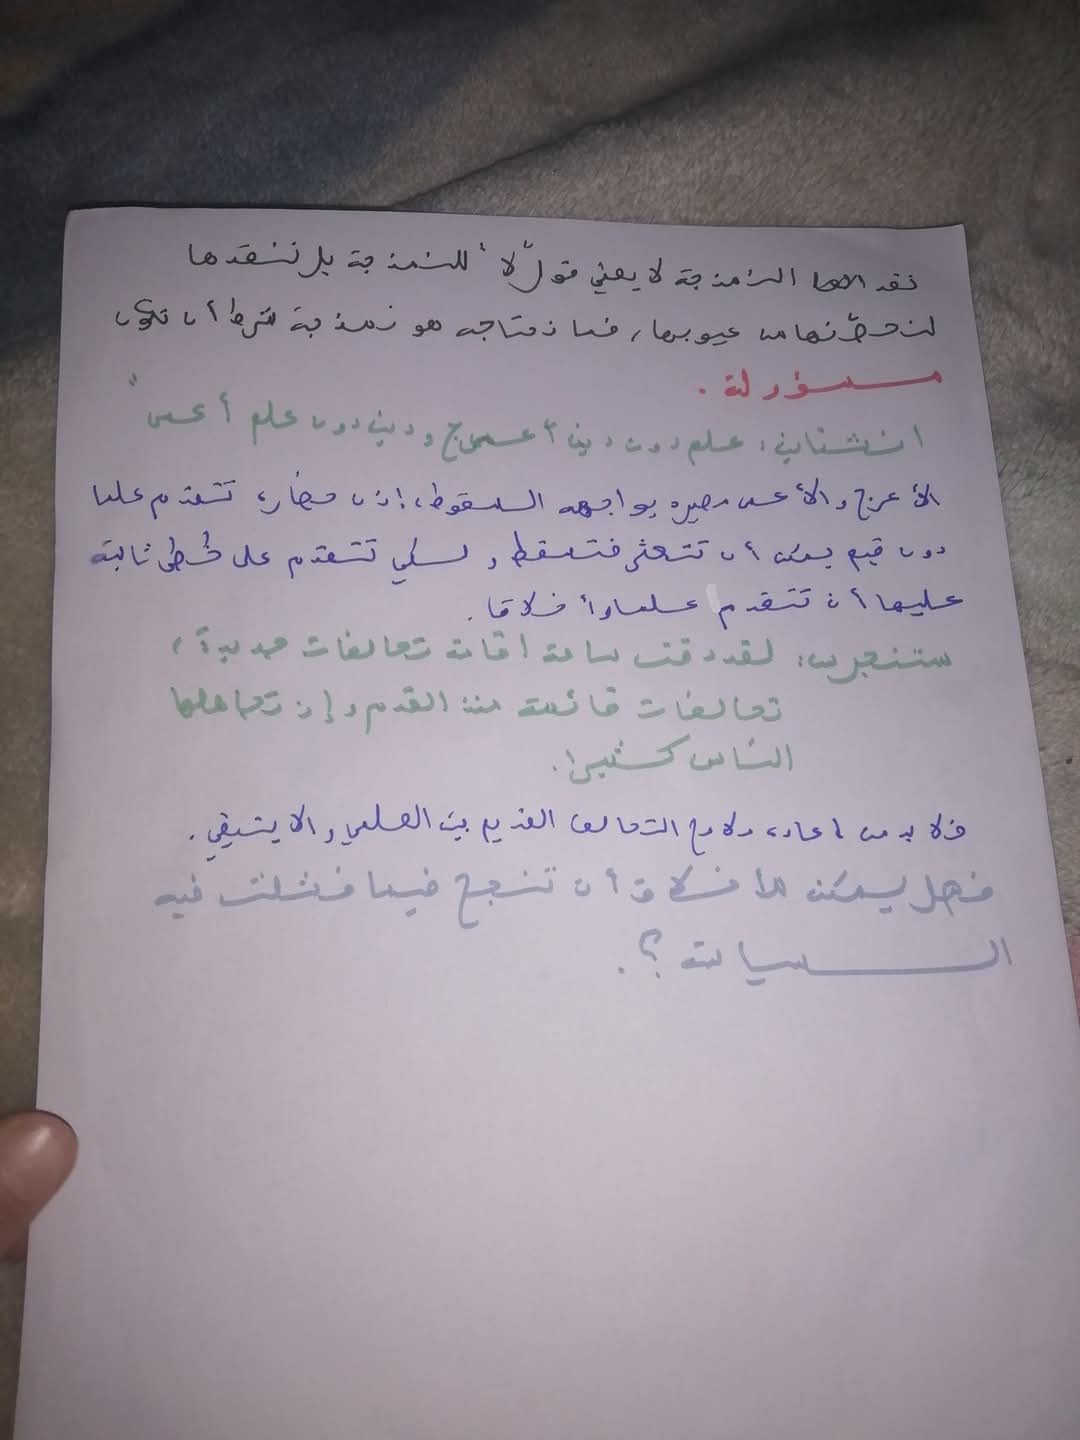 نقد الا النمذجة لا يعني قول "لا" للنمذجة بل ننقدها
لنحصّنها من عيوبها، فما نحتاجه هو نمذجة شرط أن تكون
مسؤولة.
انشتاين: علم دون دين أعرج ودين دون علم أعمى"
الأعرج والأعمى مصيره يواجهه السقوط، إذن حضارة تتقدم علما
دون قيم يمكن أن تتعثر فتسقط ولكي تتقدم على خُطى ثابتة
عليها أن تتقدم علما وأخلاقا.
ستنجرس: لقد دقت ساعة اقامة تحالفات جديدة،
تحالفات قائمة منذ القدم وإن تجاهلها
الناس كثيرا.
فلا بد من اعادة التحالف القديم بين العلمي والايتيقي.
فهل يمكن للأخلاق أن تنجح فيما فشلت فيه
السياسة؟.